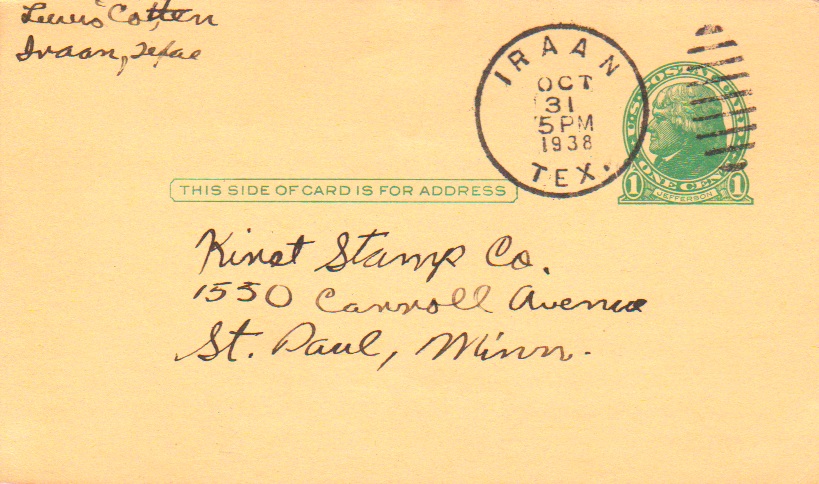 Lewis Cotten
Iraan, Texas
IRAAN
OCT
31
5 PM
1938
TEX.
U.S. POSTAL CARD
ONE CENT
1 JEFFERSON 1
THIS SIDE OF CARD IS FOR ADDRESS
Kinst Stamp Co.
1550 Carroll Avenue
St. Paul, Minn.